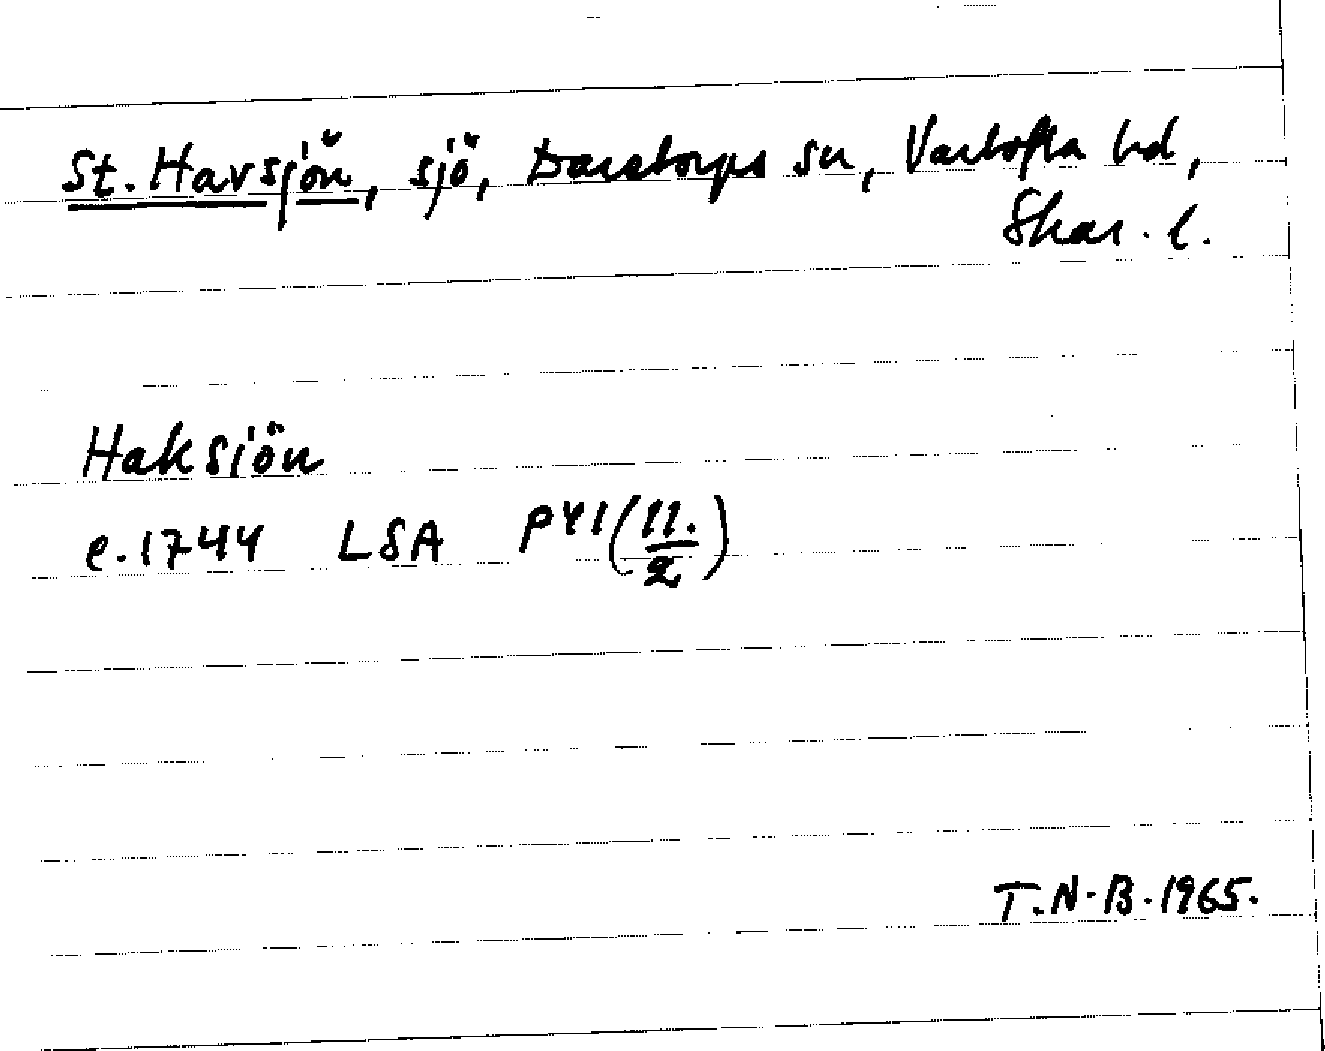 St. Havsjön, sjö, Daretorps sn, Vartofta hd,
Skar. l.
Haksiön
e. 1744 LSA P41 (11./2)
T.N.B. 1965.